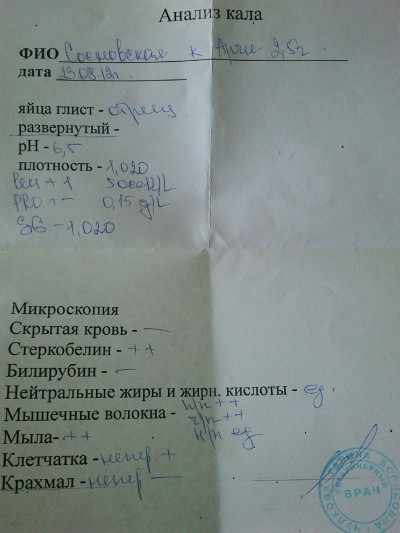 Анализ кала
ФИО Сосновская к Арчи 2,5г.
дата 23.08.12г.
яйца глист - отриц
развернутый -
pH - 6,5
плотность - 1,020
Leu + 1 500
PRO - 0,15 g/L
SG - 1,020
Микроскопия
Скрытая кровь - —
Стеркобелин - ++
Билирубин - —
Нейтральные жиры и жирн. кислоты - ед.
Мышечные волокна - п/п ++
ч/п ++
н/п ед
Мыла- ++
Клетчатка - непер +
Крахмал - непер —
ВРАЧ